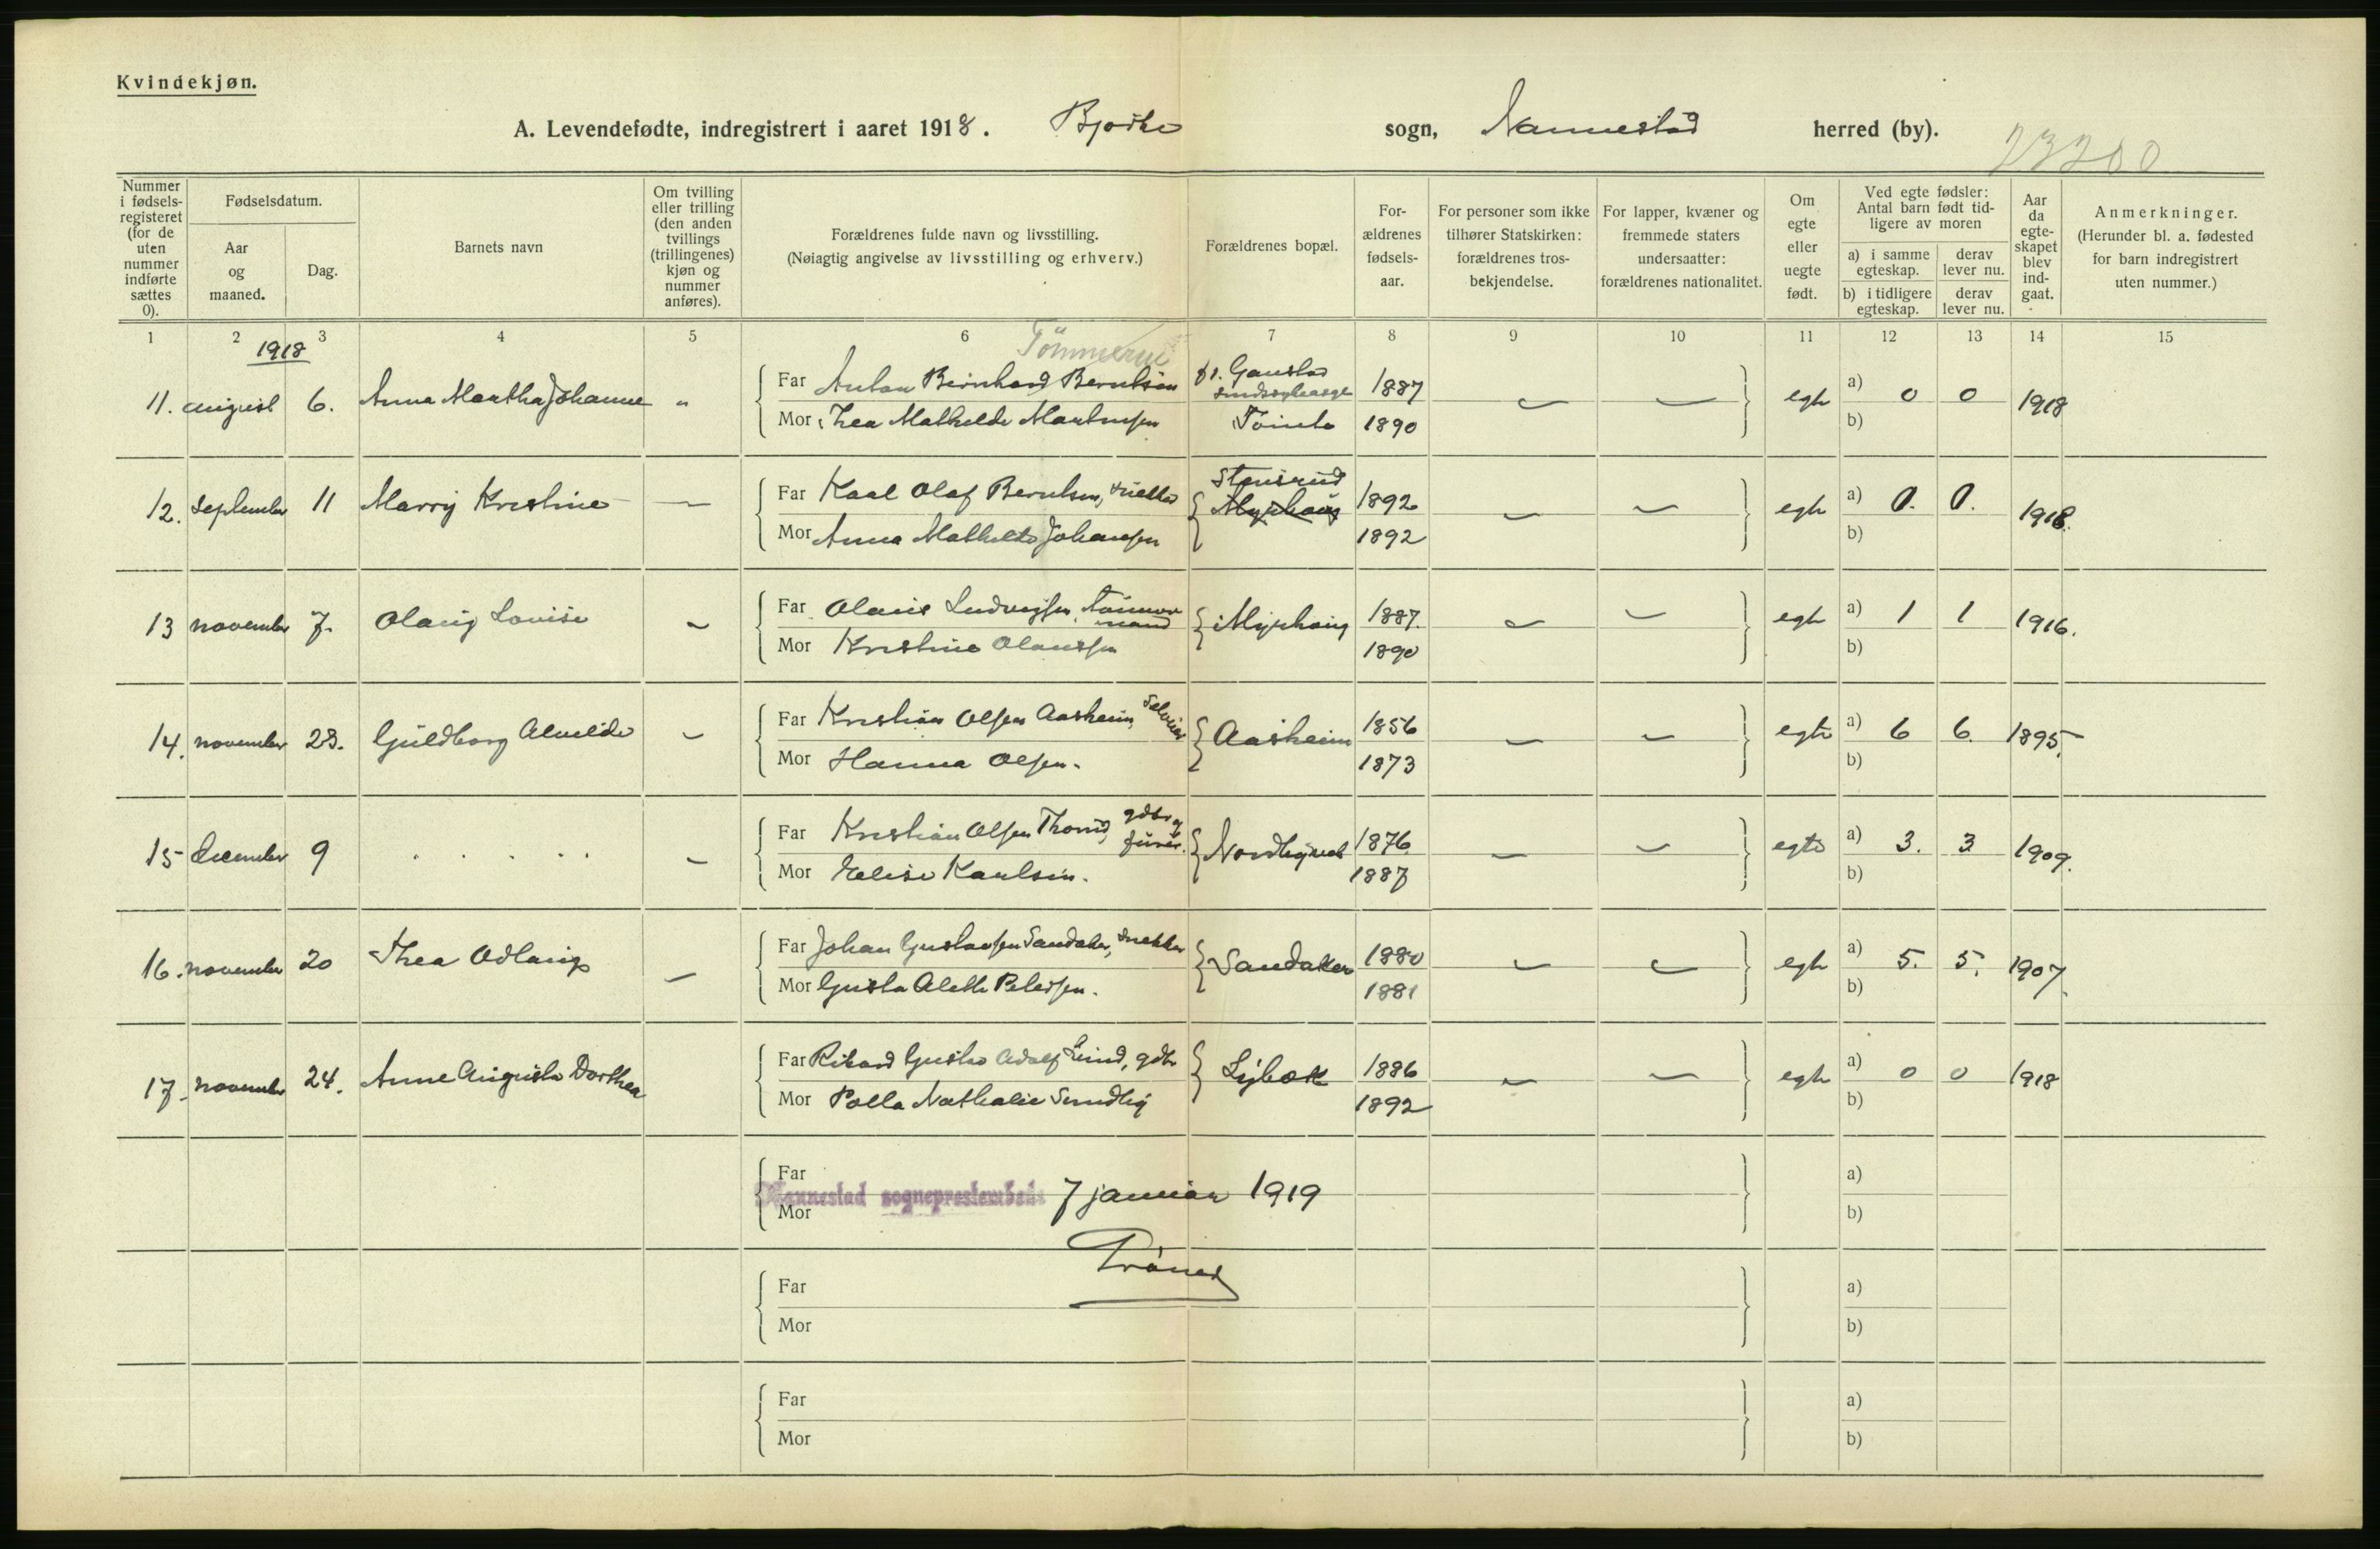 Kvindekjøn.
A. Levendefødte, indregistrert i aaret 1918. Bjørke sogn, Nannestad herred (by).
23200
Nummer i fødsels-registeret (for de uten nummer indførte sættes 0).
Fødselsdatum.
Aar og maaned.
Dag.
Barnets navn
Om tvilling eller trilling (den anden tvillings (trillingenes) kjøn og nummer anføres).
Forældrenes fulde navn og livsstilling.
(Nøiagtig angivelse av livsstilling og erhverv.)
Forældrenes bopæl.
For-ældrenes fødsels-aar.
For personer som ikke tilhører Statskirken: forældrenes tros-bekjendelse.
For lapper, kvæner og fremmede staters undersaatter: forældrenes nationalitet.
Om egte eller uegte født.
Ved egte fødsler: Antal barn født tid-ligere av moren
a) i samme egteskap.
derav lever nu.
b) i tidligere egteskap.
derav lever nu.
Aar da egte-skapet blev ind-gaat.
Anmerkninger.
(Herunder bl. a. fødested for barn indregistrert uten nummer.)
1 2 3 4 5 6 7 8 9 10 11 12 13 14 15
1918
11. august 6. Anna Martha Johanne "
Far Anton Bernhard Berntsen 1887
Mor Thea Mathilde Martinsen Tømte 1890
egte a) 0 0 1918
b)
12. september 11 Marry Kristine —
Far Karl Olaf Berntsen, snekker Stensrud 1892
Mor Anna Mathilde Johansen Myrhaug 1892
egte a) 0. 0. 1918.
b)
13 november 7. Olaug Lovise
Far Olaus Ludvigsen, tømmermand Myrhaug 1887.
Mor Kristine Olaussen 1890
egte a) 1 1 1916.
b)
14. november 23. Guldborg Alvilde
Far Kristian Olsen Aasheim, Selveier Aasheim 1856
Mor Hanna Olsen. 1873
egte a) 6 6. 1895.
b)
15 december 9 . . . . .
Far Kristian Olsen Thorud, gdbr. Nordbyvet 1876
Mor Elise Karlsen. 1887
egte a) 3. 3 1909.
b)
16. november 20 Thea Odlaug
Far Johan Gustavsen Sandaker, snekker Sandaker 1880
Mor Gusta Alette Pedersen. 1881
egte a) 5. 5. 1907.
b)
17. november 24. Anne Augusta Dorthea
Far Rikard Gustav Adolf Lund, gdbr Lybæk 1886
Mor Polla Nathalie Sundby 1892
egte a) 0 0 1918
b)
Far a)
Nannestad sogneprestembede 7 januar 1919
Mor b)
Far a)
Mor b)
Far a)
Mor b)